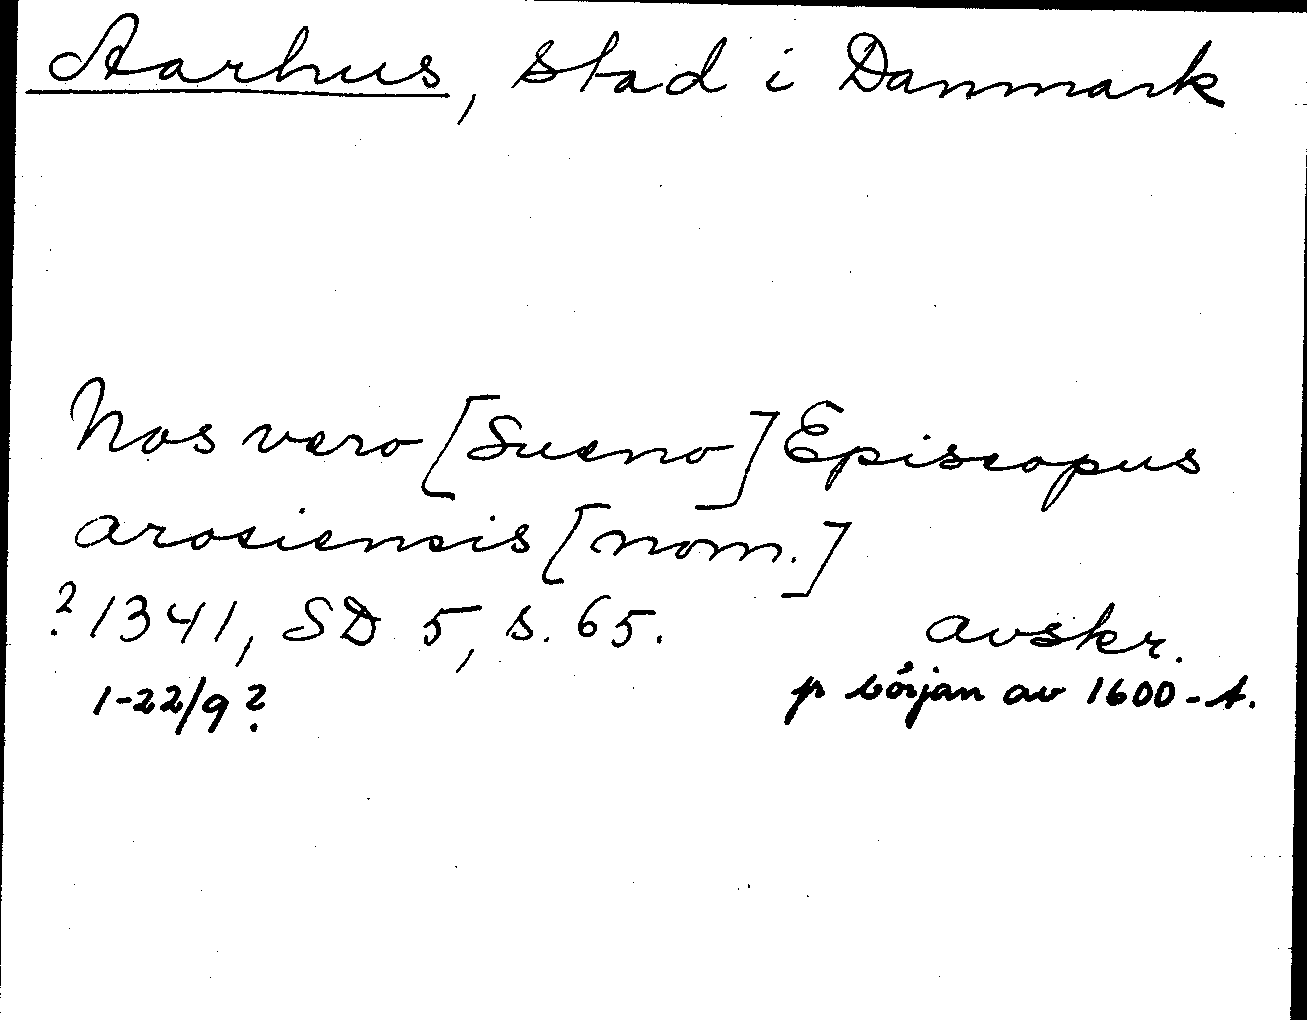 Aarhus, stad i Danmark
Nos vero [Sueno] Episcopus
arosiensis [nom.]
? 1341, SD 5, s. 65. avskr.
1-22/9 ? p början av 1600-t.